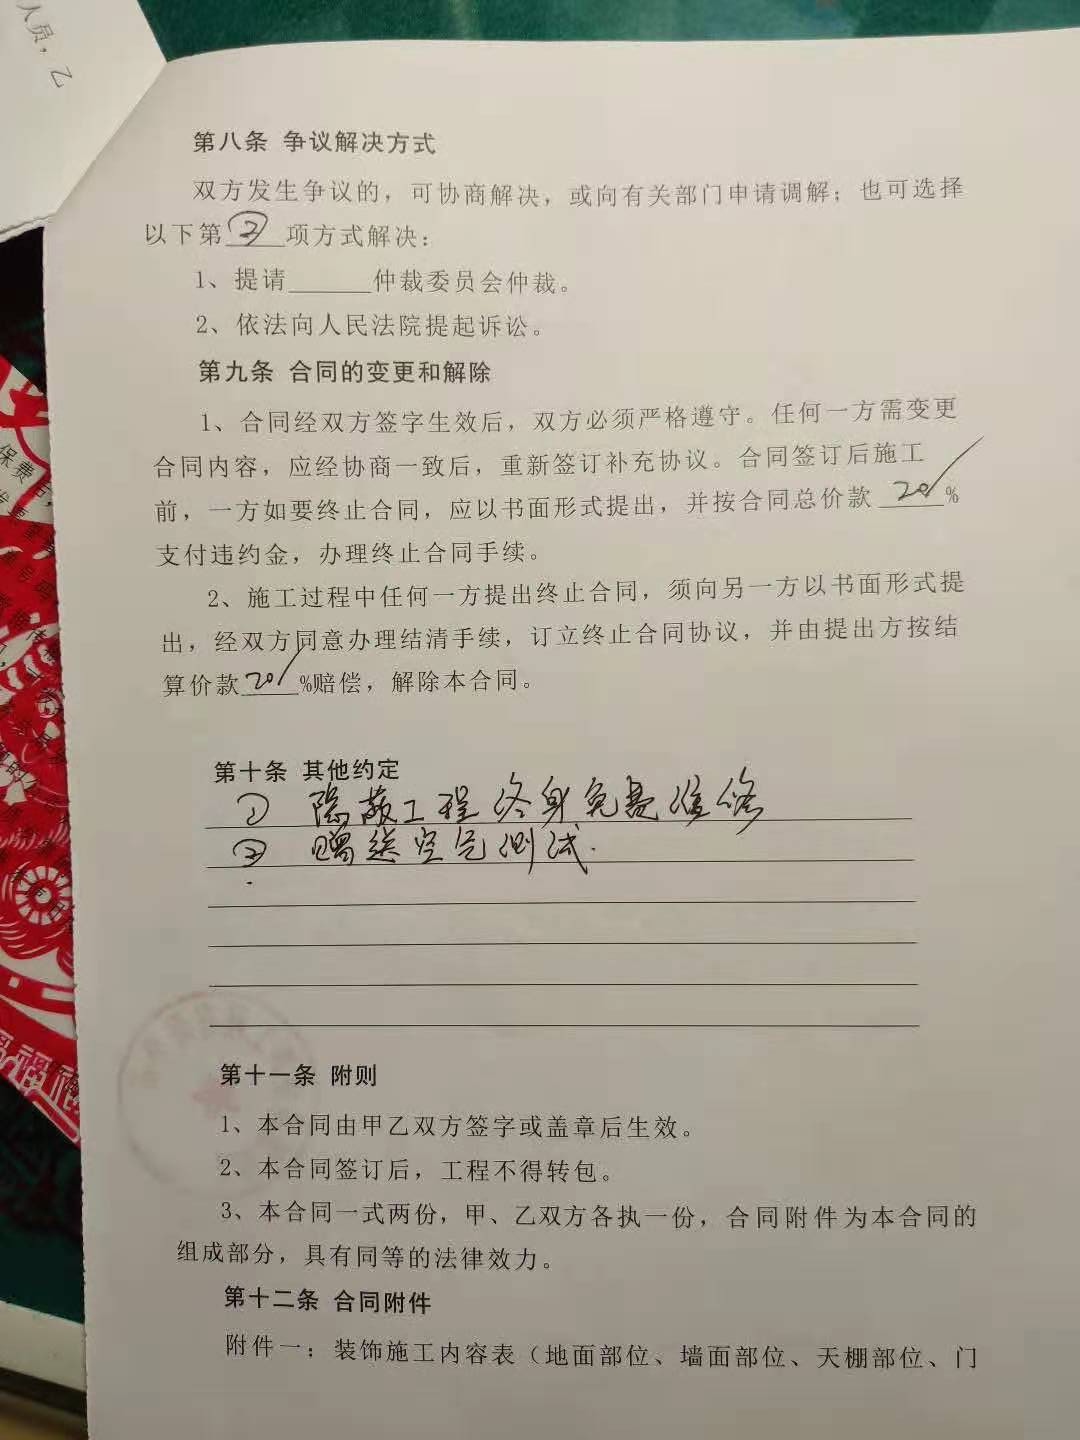 人员，乙
第八条 争议解决方式
双方发生争议的，可协商解决，或向有关部门申请调解；也可选择
以下第②项方式解决：
1、提请______仲裁委员会仲裁。
2、依法向人民法院提起诉讼。
第九条 合同的变更和解除
1、合同经双方签字生效后，双方必须严格遵守。任何一方需变更
合同内容，应经协商一致后，重新签订补充协议。合同签订后施工
前，一方如要终止合同，应以书面形式提出，并按合同总价款 20 %
支付违约金，办理终止合同手续。
2、施工过程中任何一方提出终止合同，须向另一方以书面形式提
出，经双方同意办理结清手续，订立终止合同协议，并由提出方按结
算价款 20 %赔偿，解除本合同。
第十条 其他约定
① 隐蔽工程终身免费维修
② 赠送空气测试.
第十一条 附则
1、本合同由甲乙双方签字或盖章后生效。
2、本合同签订后，工程不得转包。
3、本合同一式两份，甲、乙双方各执一份，合同附件为本合同的
组成部分，具有同等的法律效力。
第十二条 合同附件
附件一：装饰施工内容表（地面部位、墙面部位、天棚部位、门